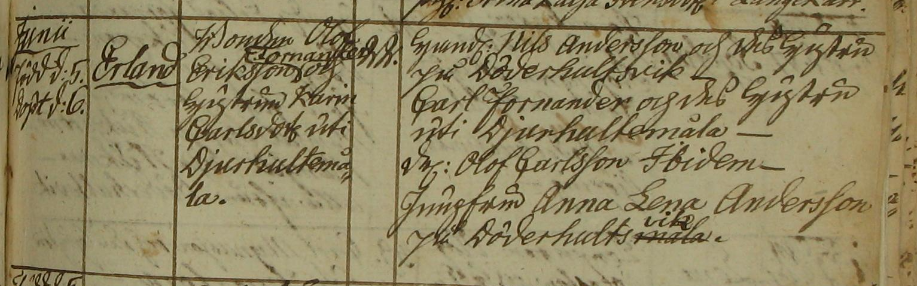 Junii
född d: 5.
döpt d: 6.
Erland
Bonden Olof
Fornander
Eriksson och
Hustrun Karin
Carlsdotr uti
Djurhultemå
la.
Nils Andersson och des Hustru
på Döderhultsvik
Carl Fornander och des Hustru
uti Djurhultemåla —
Dr: Olof Carlsson Ibidem —
Jungfrun Anna Lena Andersson
på Döderhultsmåla vik.